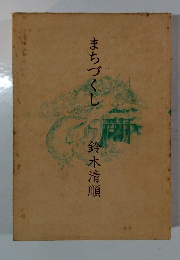 まちづくし
鈴木清順